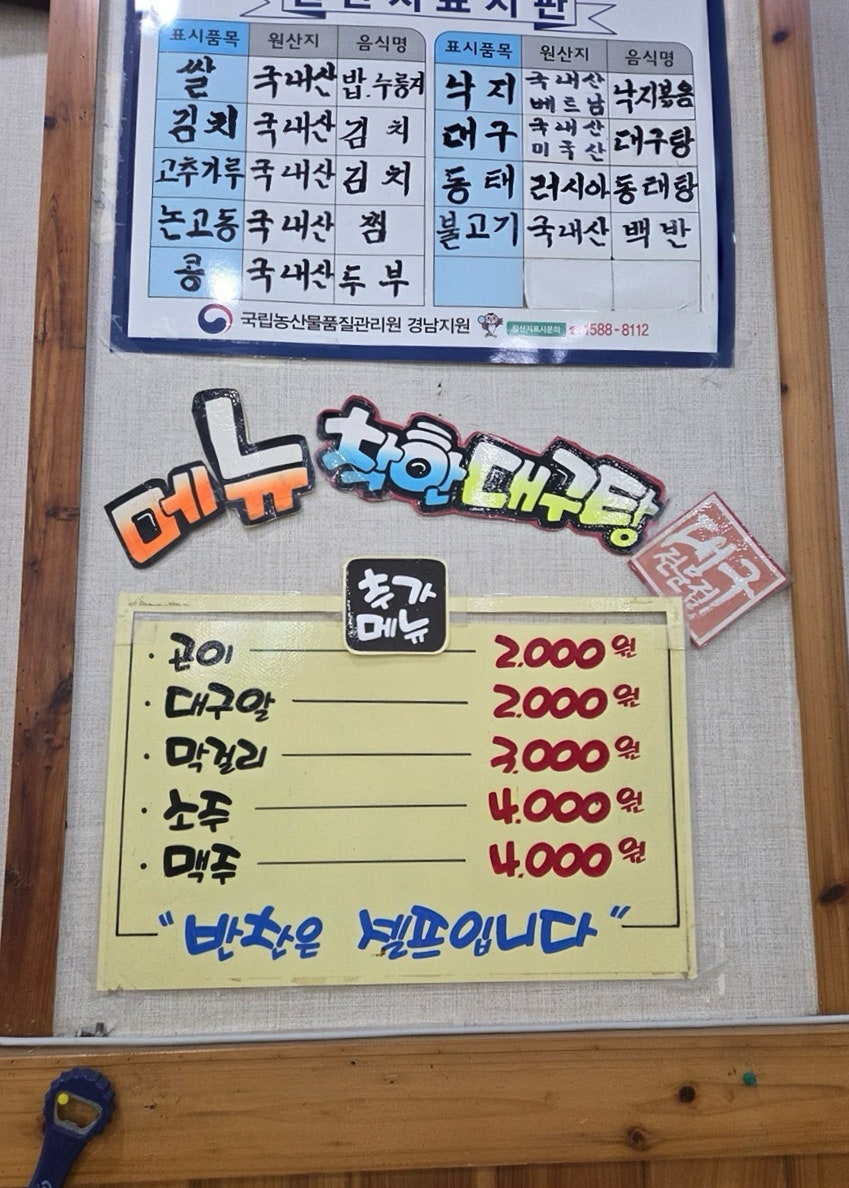 원산지표시판
표시품목 원산지 음식명
쌀 국내산 밥.누룽지
김치 국내산 김치
고추가루 국내산 김치
논고동 국내산 찜
콩 국내산 두부
표시품목 원산지 음식명
낙지 국내산 베트남 낙지볶음
대구 국내산 미국산 대구탕
동태 러시아 동태탕
불고기 국내산 백반
국립농산물품질관리원 경남지원 원산지표시문의 1588-8112
메뉴 착한대구탕
대구
전문점
추가
메뉴
· 곤이 2.000원
· 대구알 2.000원
· 막걸리 3.000원
· 소주 4.000원
· 맥주 4.000원
"반찬은 셀프입니다"